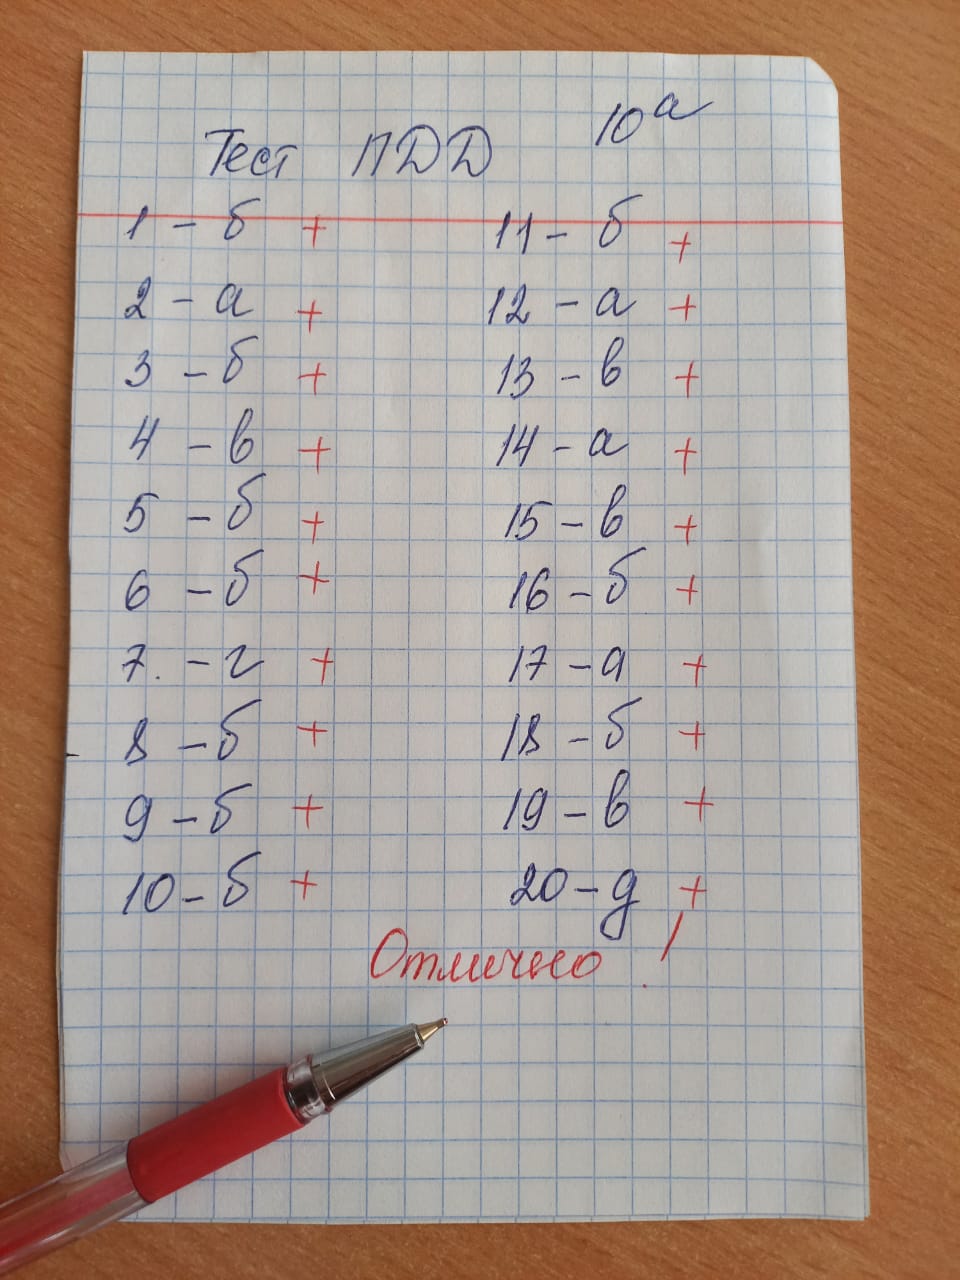 Тест ПДД 10а
1 - б + 11 - б +
2 - а + 12 - а +
3 - б + 13 - в +
4 - в + 14 - а +
5 - б + 15 - в +
6 - б + 16 - б +
7. - г + 17 - а +
8 - б + 18 - б +
9 - б + 19 - в +
10 - б + 20 - д +
Отлично!